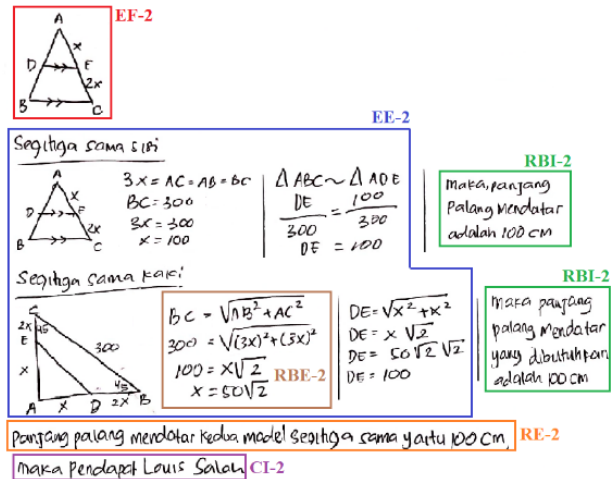 EF-2
A
x
D E
2x
B C
EE-2
Segitiga sama sisi
A
x
D E
2x
B C
3x = AC = AB = BC
BC = 300
3x = 300
x = 100
△ABC ~ △ADE
DE/300 = 100/300
DE = 100
RBI-2
maka, panjang
Palang mendatar
adalah 100 cm
Segitiga sama kaki
C
2x 45
E
300
x
45
A x D 2x B
BC = √AB² + AC²
300 = √(3x)² + (3x)²
100 = x√2
x = 50√2
RBE-2
DE = √x² + x²
DE = x √2
DE = 50√2 √2
DE = 100
RBI-2
maka panjang
palang mendatar
yang dibutuhkan
adalah 100 cm
panjang palang mendatar kedua model segitiga sama yaitu 100 cm, RE-2
maka pendapat Louis Salah CI-2